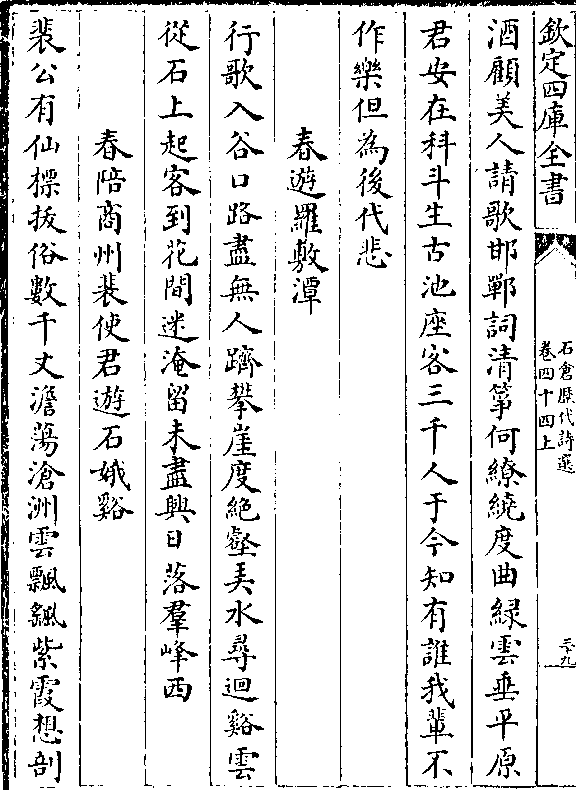 欽定四庫全書
石倉歷代詩選
卷四十四上
三十九
酒顧美人請歌邯鄲詞清箏何繚繞度曲綠雲垂平原
君安在科斗生古池座客三千人于今知有誰我輩不
作樂但為後代悲
春遊羅敷潭
行歌入谷口路盡無人躋攀崖度絶壑弄水尋迴谿雲
從石上起客到花間迷淹留未盡興日落羣峰西
春陪商州裴使君遊石娥谿
裴公有仙標拔俗數千丈澹蕩滄洲雲飄飖紫霞想剖